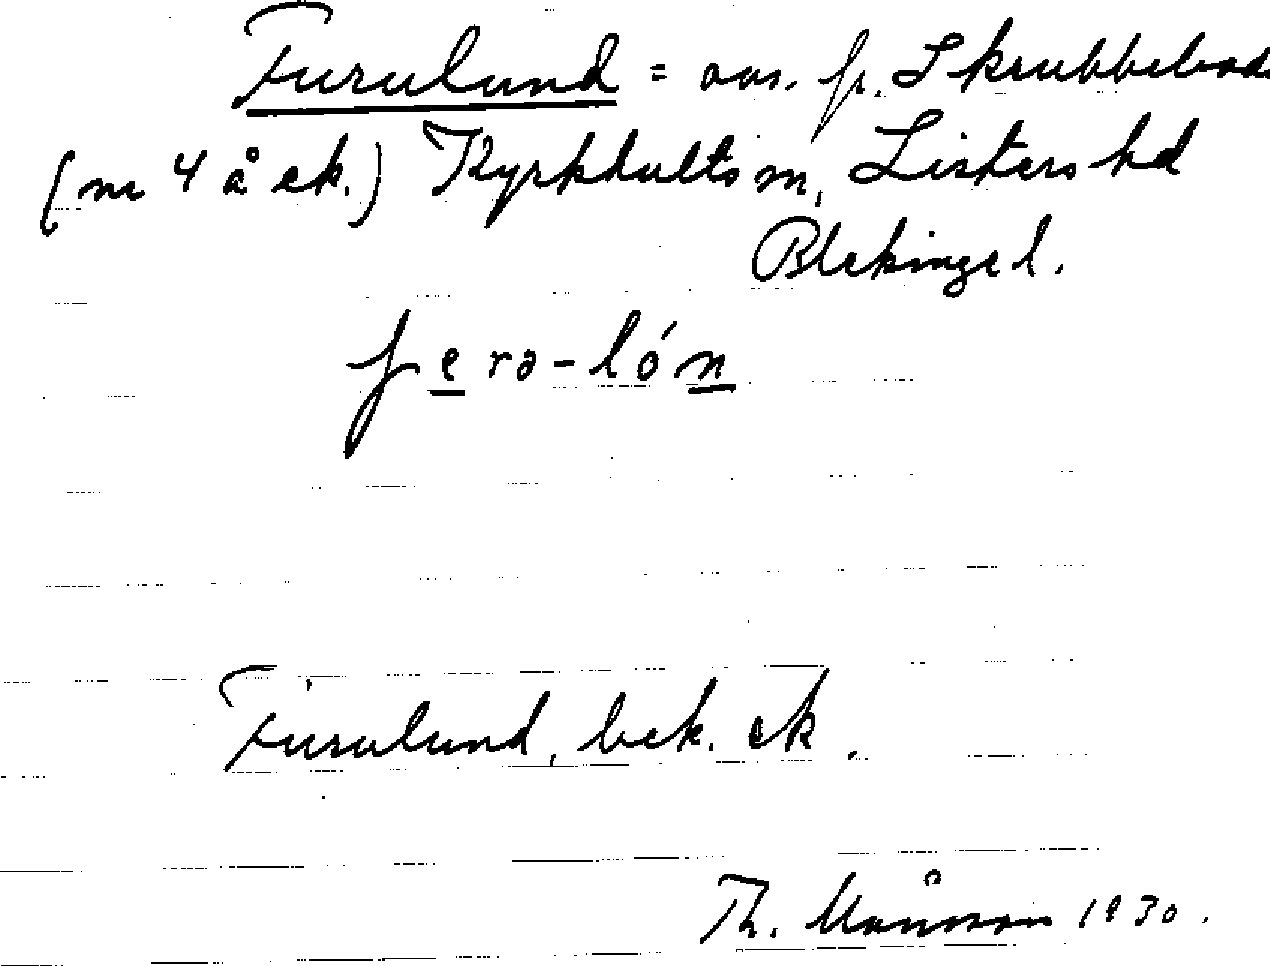 Furulund = avs. fr. Skrubbebod
(nr 4 å ek.) Kyrkhults sn, Listers hd
Blekinge l.
fɐrə-lón
Furulund, bek. ek.
Th. Månsson 1930.